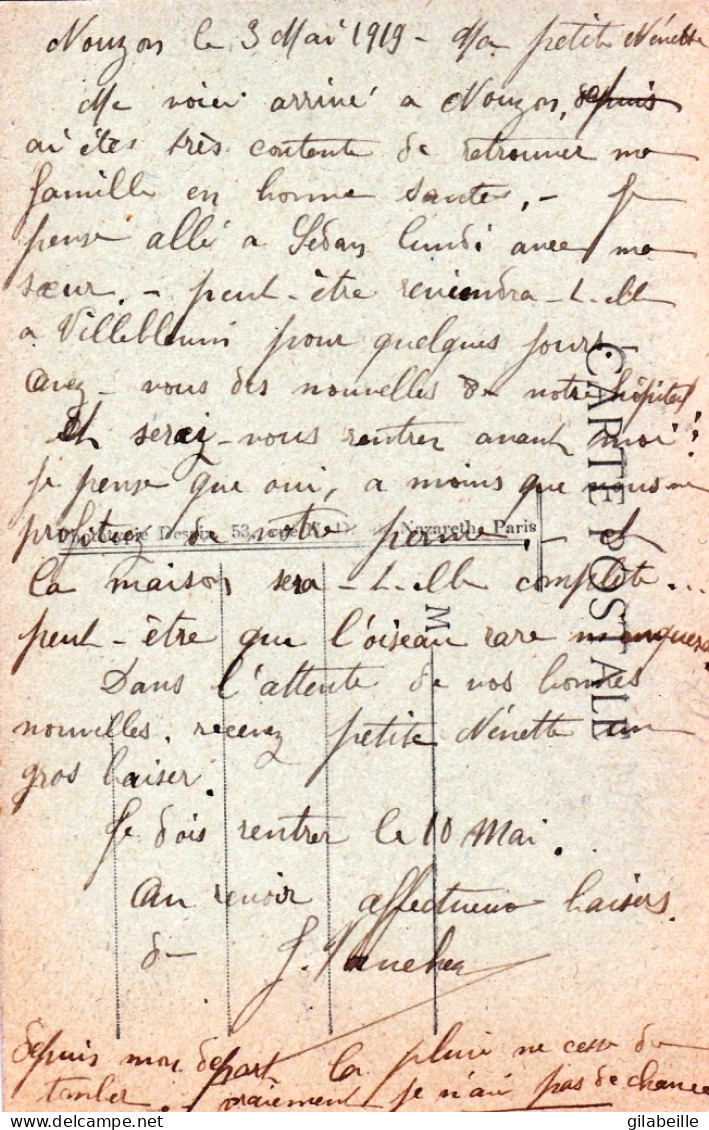 Nouzon le 3 Mai 1919 - Ma petite Nénette
Me voici arrivé a Nouzon, depuis
ai étes très contente de retrouver ma
famille en bonne santée, - Je
pense allé a Sedan lundi avec ma
sœur. - peut-être reviendra-t-elle
a Villeblevin pour quelques jours.
avez-vous des nouvelles de notre hôpital
et serez-vous rentrer avant moi?
je pense que oui, a moins que vous ne
profitiez de votre perme, - et
la maison sera-t-elle complète...
peut-être que l'oiseau rare manquera
Dans l'attente de vos bonnes
nouvelles. recevez petite Nénette un
gros baiser.
Je dois rentrer le 10 Mai.
au revoir affectueux baisers.
de J.
depuis mon depart la pluie ne cesse de
tomber. - vraiement je n'ai pas de chance
CARTE POSTALE
53, Nazareth, Paris
M
delcampe.net
gilabeille